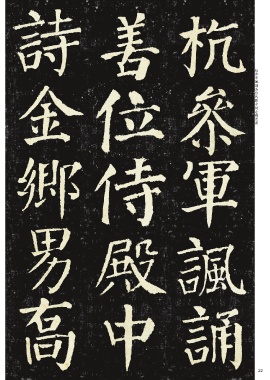 杭叅軍諷誦
善位侍殿中
詩金鄉男高
22